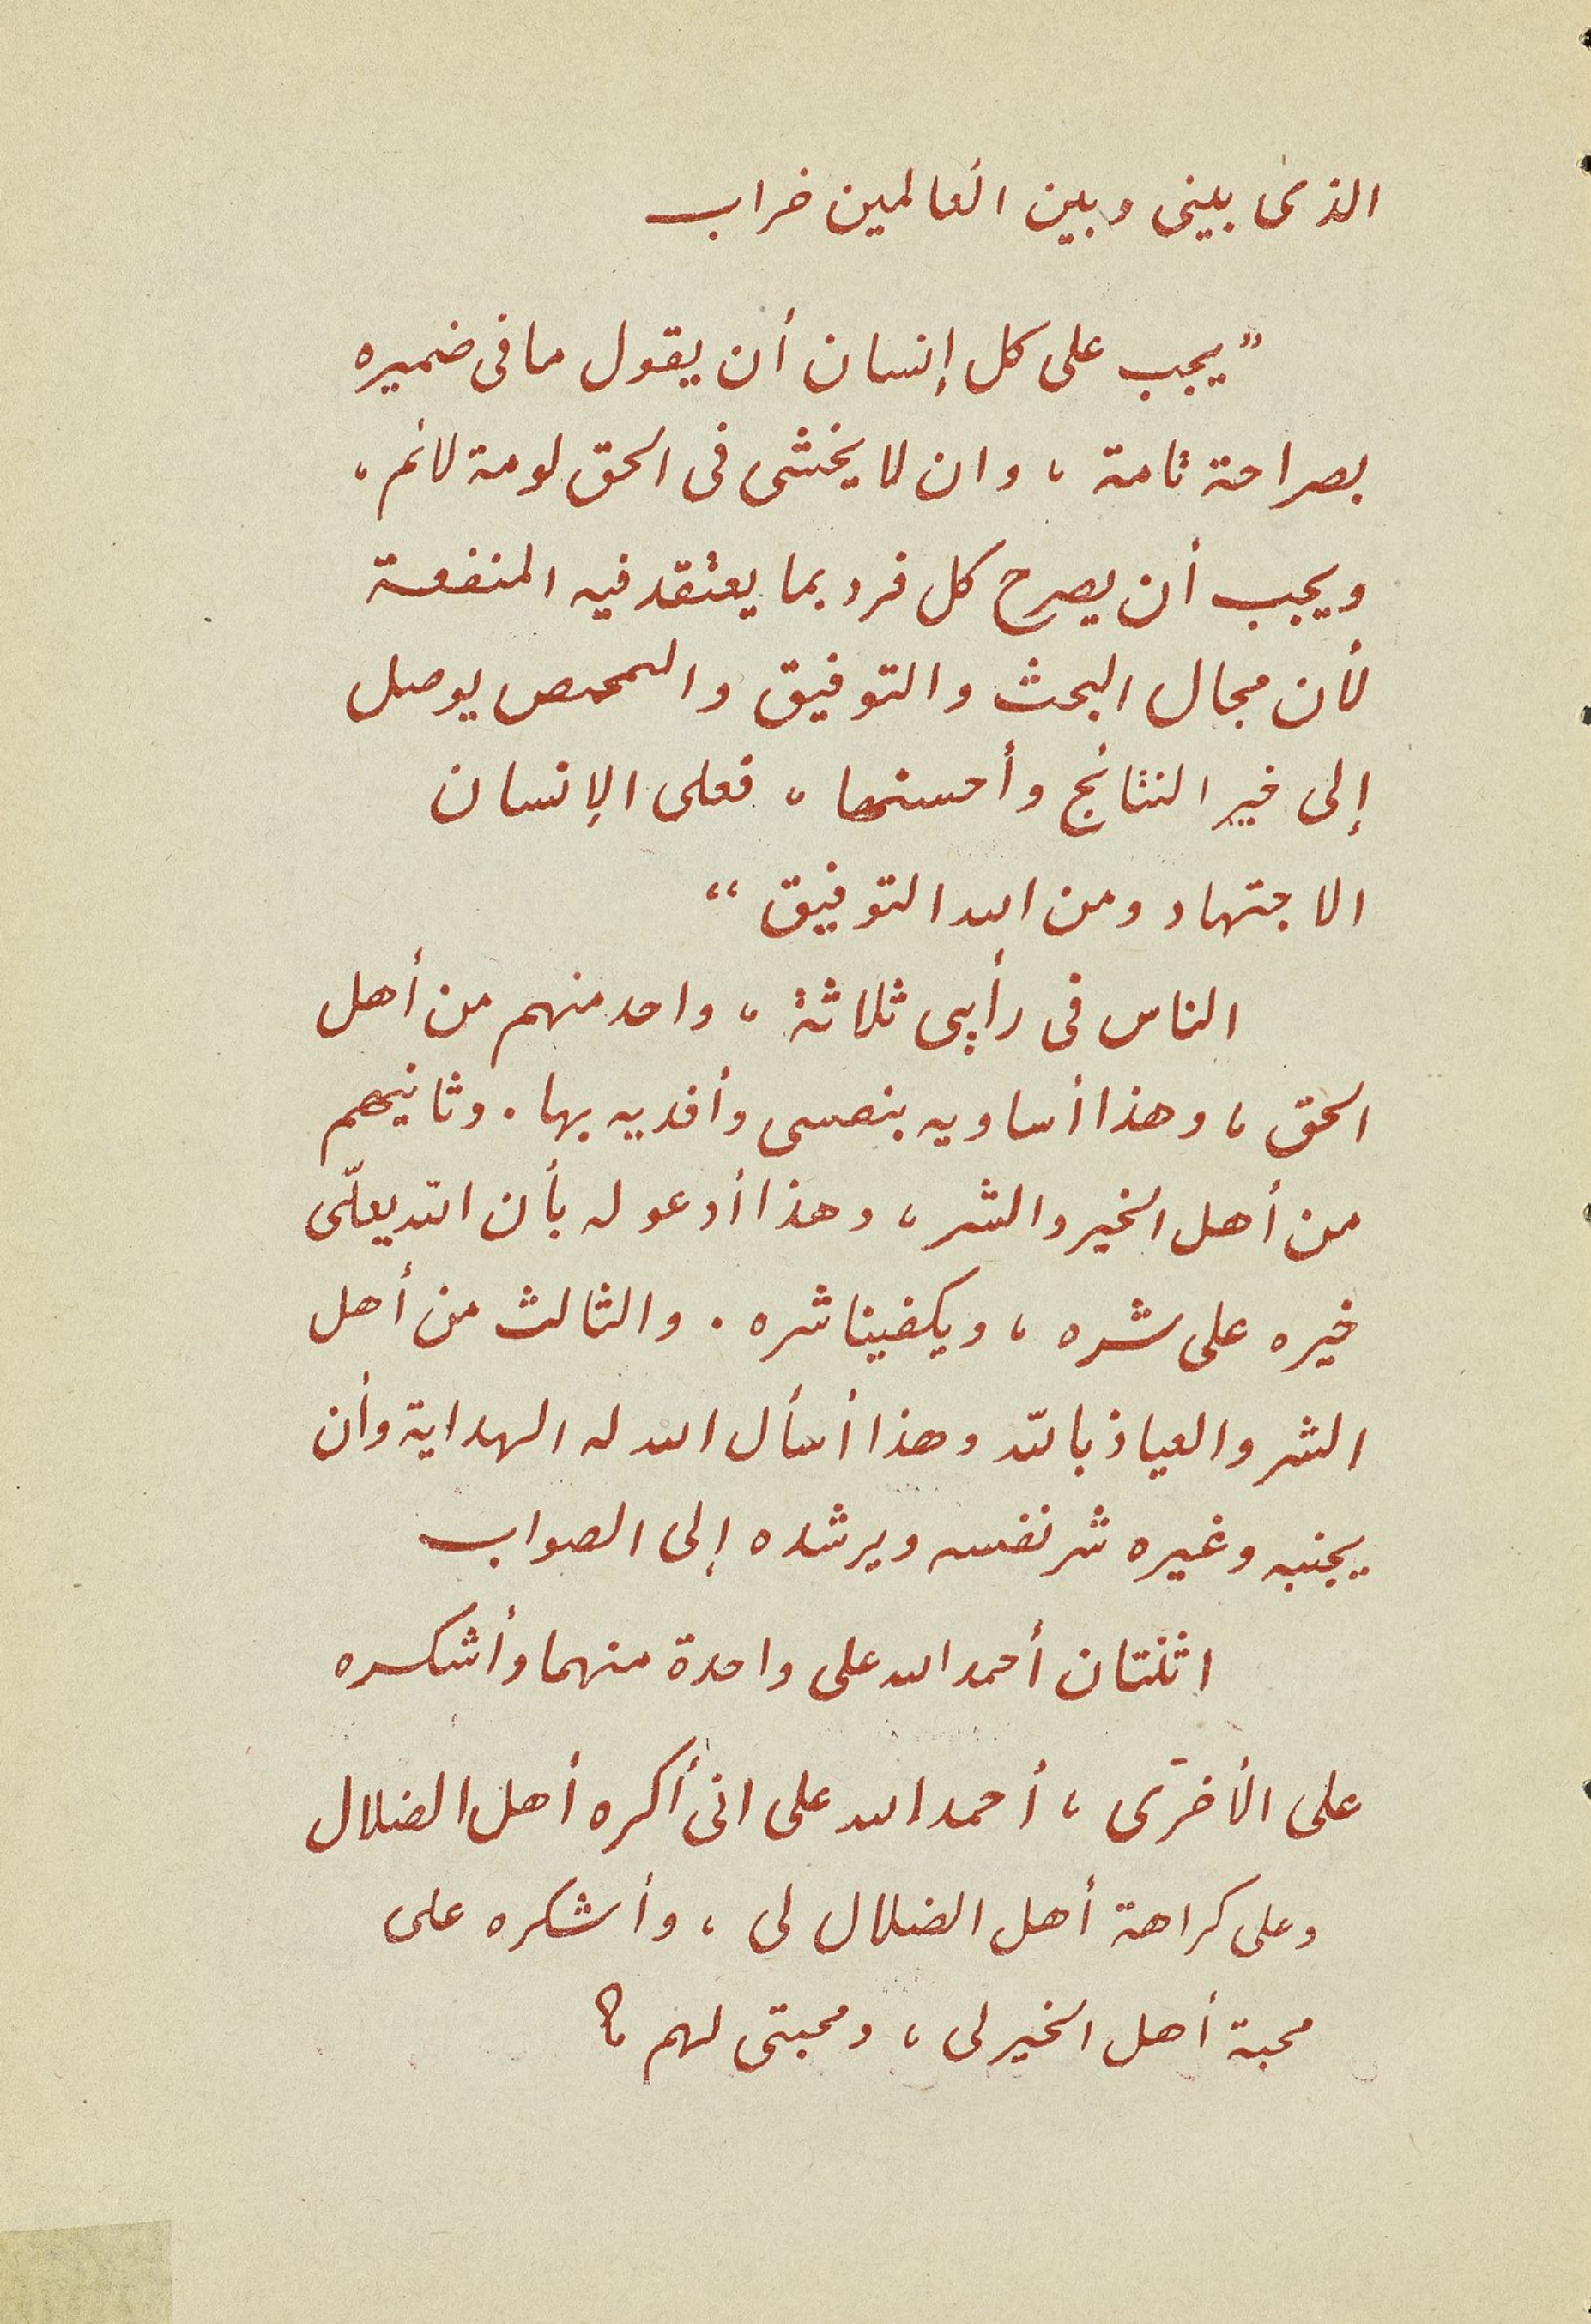 الذى بينى وبين العالمين خراب
"يجب على كل إنسان أن يقول ما فى ضميره
بصراحة تامة ، وان لا يخشى فى الحق لومة لائم ،
ويجب أن يصرح كل فرد بما يعتقد فيه المنفعة
لأن مجال البحث والتوفيق والتمحص يوصل
إلى خير النتائج وأحسنها ، فعلى الإنسان
الاجتهاد ومن الله التوفيق "
الناس فى رأيى ثلاثة ، واحد منهم من أهل
الحق ، وهذا أساويه بنفسى وأفديه بها . وثانيهم
من أهل الخير والشر ، وهذا أدعو له بأن الله يعلّى
خيره على شره ، ويكفينا شره . والثالث من أهل
الشر والعياذ بالله وهذا أسأل الله له الهداية وأن
يجنبه وغيره شر نفسه ويرشده إلى الصواب
اثنتان أحمد الله على واحدة منهما وأشكره
على الأخرى ، أحمد الله على انى أكره أهل الضلال
وعلى كراهة أهل الضلال لى ، وأشكره على
محبة أهل الخير لى ، ومحبتى لهم